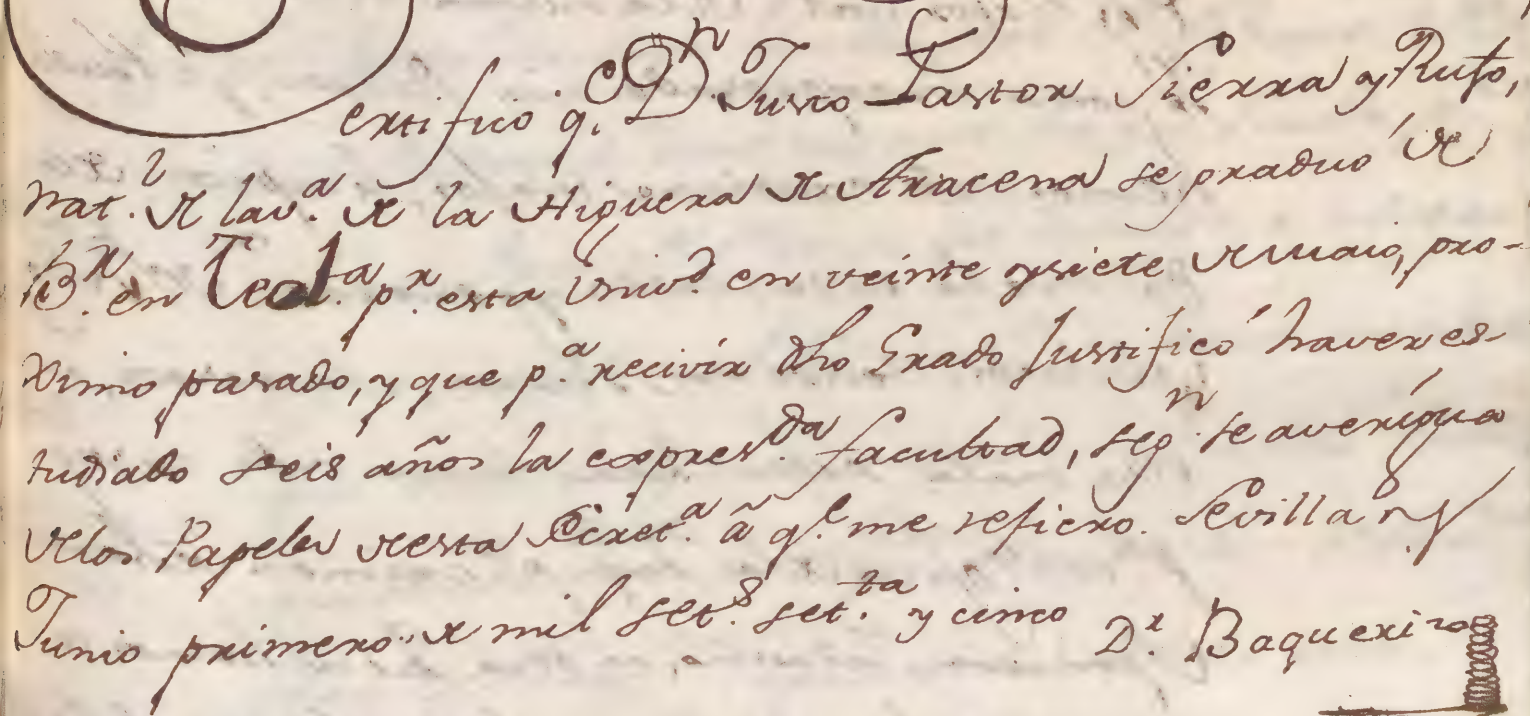 Certifico q.e D.n Justo Pastor Sierra y Rufo,
nat.l de la v.a de la Higuera de Aracena se graduó de
B.r en Teol.a p.r esta Univ.d en veinte y siete de maio, pro-
ximo pasado, y que p.a recivir dho Grado Justificó haver es-
tudiado seis años la expres.da facultad, seg.n se averigua
de los Papeles de esta Secret.a â q.e me refiero. Sevilla y
Junio primero de mil set.s set.ta y cinco D.r Baquerizo